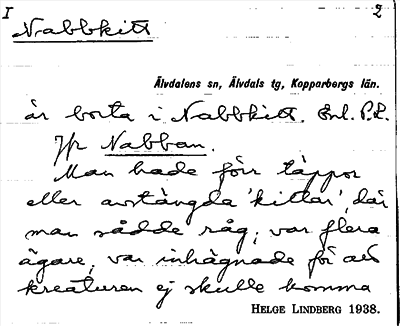 I 2
Nabbkitt
Älvdalens sn, Älvdals tg, Kopparbergs län.
är borta i Nabbkitt. Enl. P.L.
Jfr Nabban.
Man hade förr täppor
eller avstängda 'kittar', där
man sådde råg; var flera
ägare, var inhägnade för att
kreaturen ej skulle komma
HELGE LINDBERG 1938.